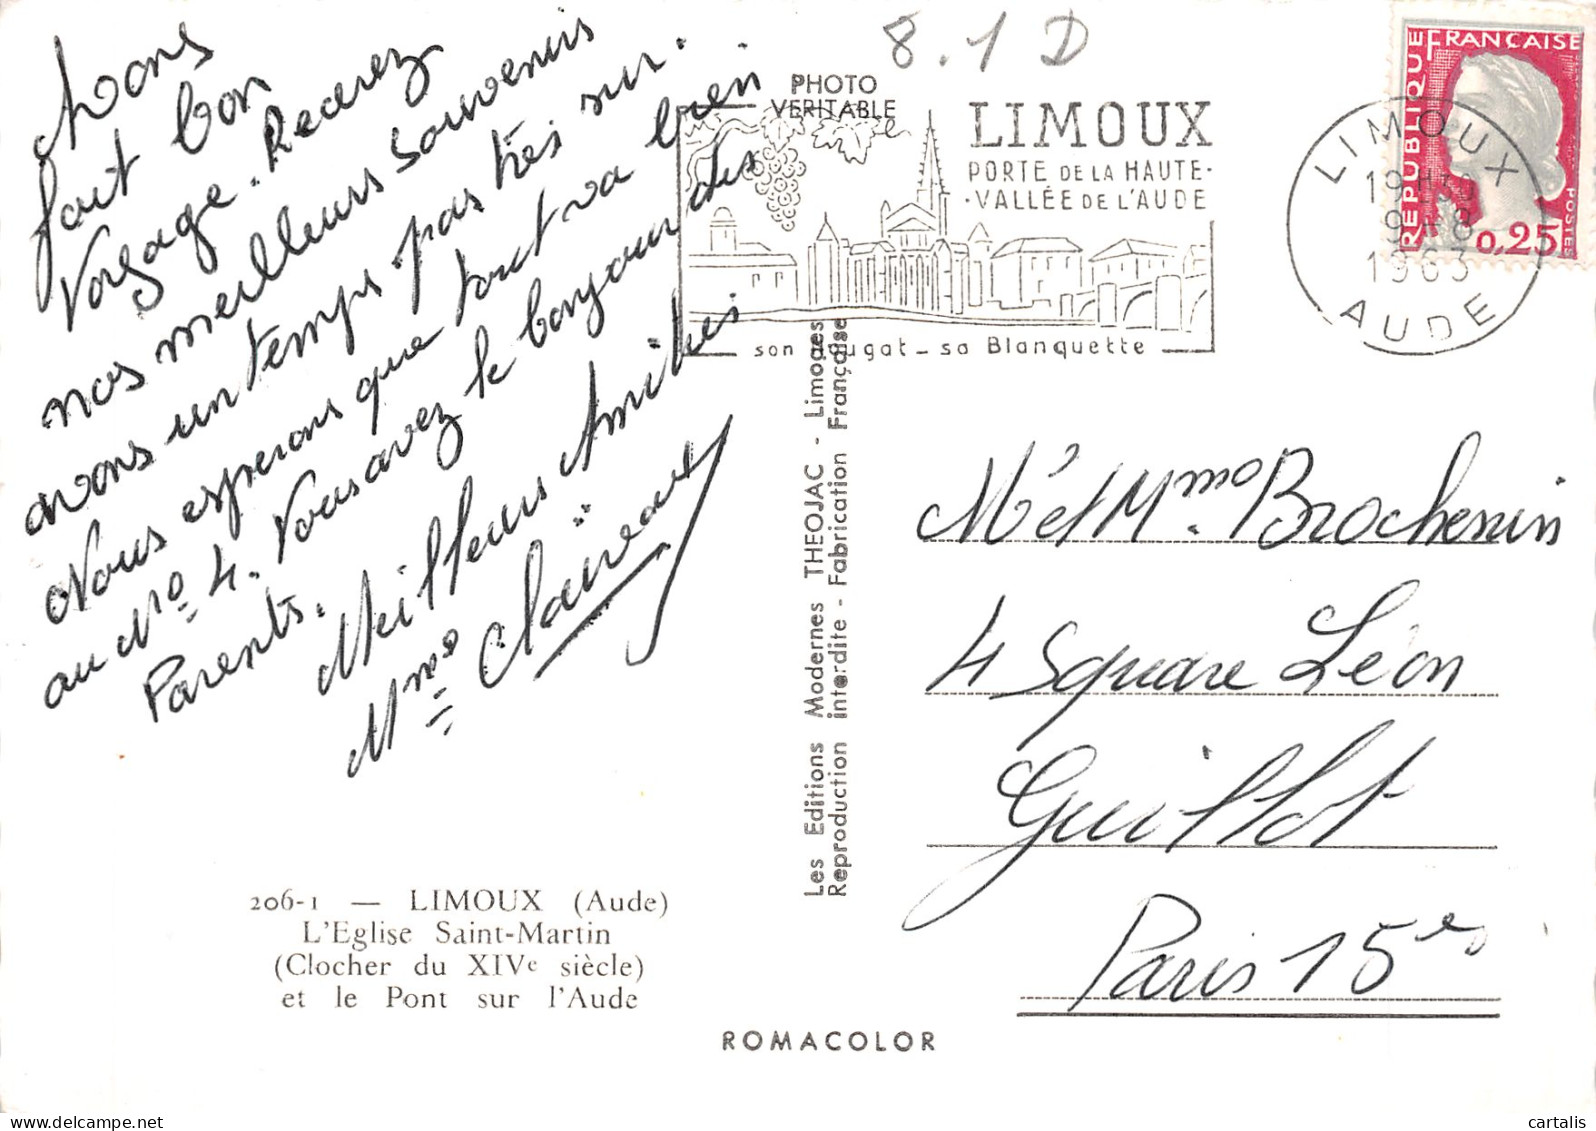 Avons
fait bon
Voyage. Recevez
nos meilleurs souvenirs
avons un temps pas très sur.
Nous esperons que tout va bien
au Nº 4. Vous avez le bonjour des
Parents.
Meilleurs Amitiés
Mme Claireaux
206-1 — LIMOUX (Aude)
L'Eglise Saint-Martin
(Clocher du XIVe siècle)
et le Pont sur l'Aude
ROMACOLOR
Les Editions Modernes THEOJAC - Limoges
Reproduction interdite - Fabrication Française
8.1 D
PHOTO
VERITABLE
LIMOUX
PORTE DE LA HAUTE-
-VALLÉE DE L'AUDE
son nougat _ sa Blanquette
LIMOUX
19H30
9-8
1963
AUDE
REPUBLIQUE FRANÇAISE
0,25
POSTES
Mr et Mme Brochenin
4 Square Léon
Guillot
Paris 15e
cartalis
delcampe.net